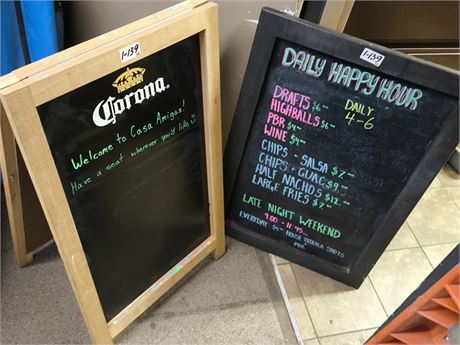 1-139
Corona
Welcome to Casa Amigos!
Have a seat wherever you'd like
1-139
DAILY HAPPY HOUR
DAILY
4-6
DRAFTS $6.00
HIGHBALLS $6.00
PBR $4.00
WINE $4.00
CHIPS - SALSA $7.00
CHIPS - GUAC $9.00
HALF NACHOS $12.00
LARGE FRIES $7.00
LATE NIGHT WEEKEND
9:00 - 11:45
EVERYDAY $4.00 HOUSE TEQUILA SHOTS
PBR